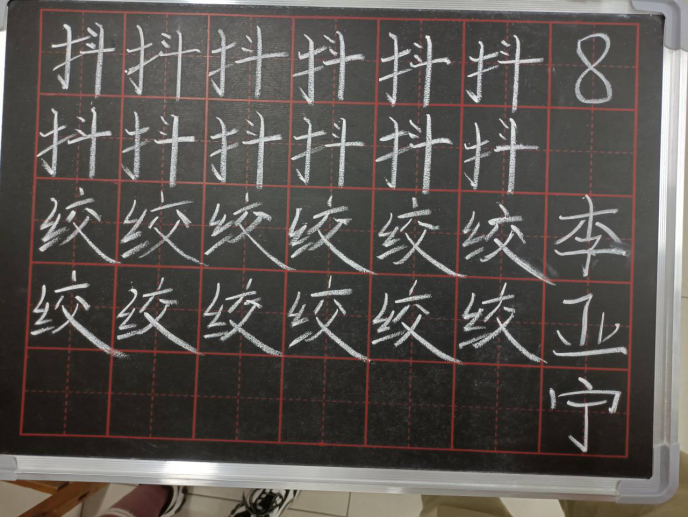 抖抖抖抖抖抖8
抖抖抖抖抖抖
绞绞绞绞绞绞李
绞绞绞绞绞绞亚
宁